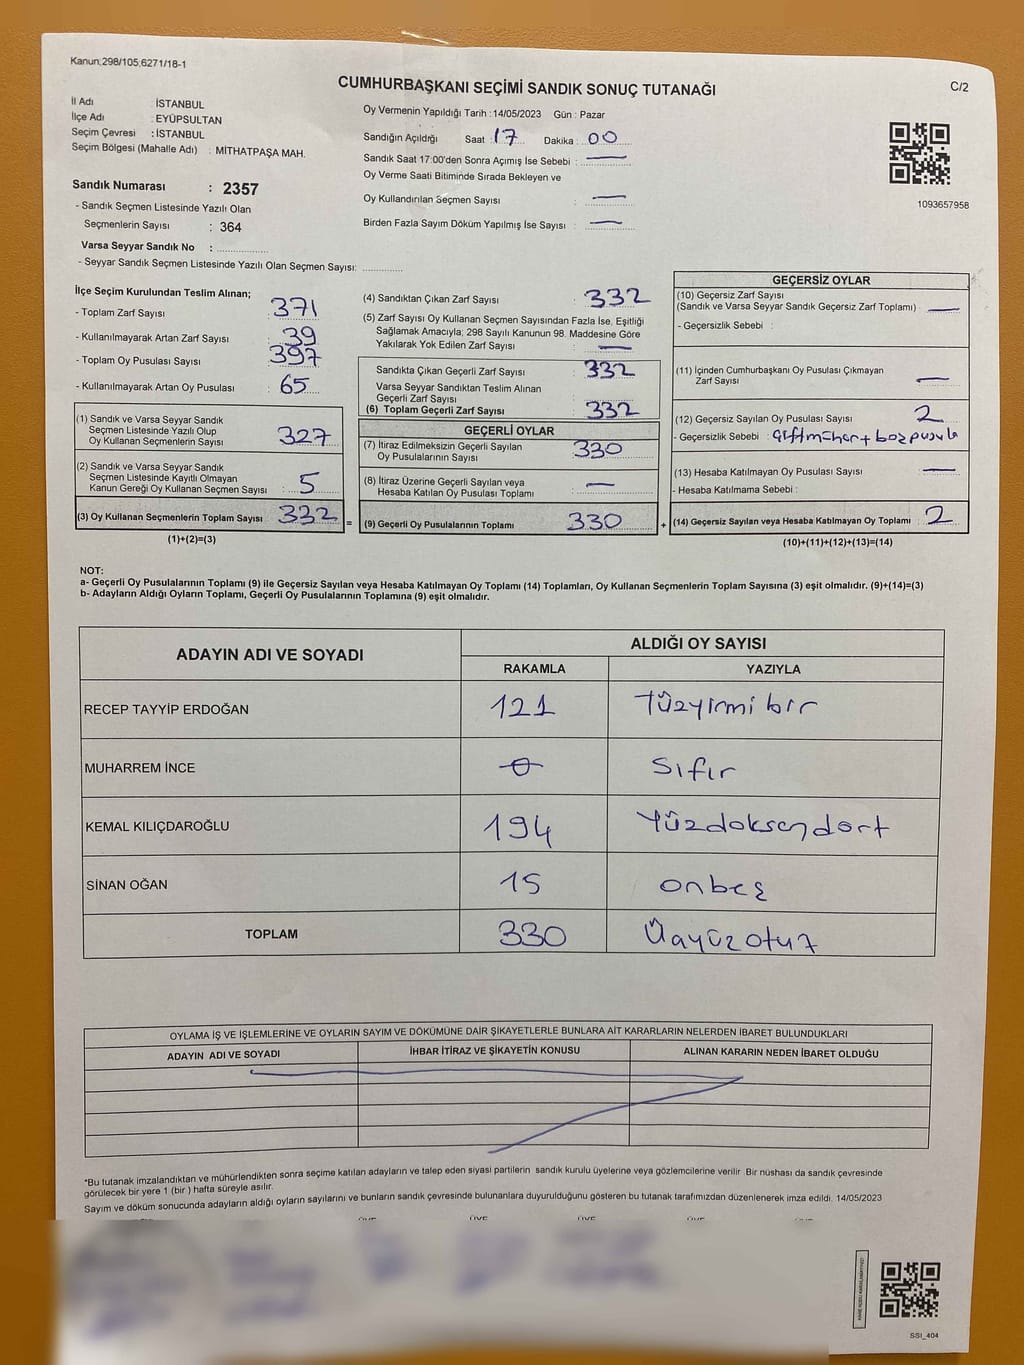 Kanun;298/105;6271/18-1
CUMHURBAŞKANI SEÇİMİ SANDIK SONUÇ TUTANAĞI
C/2
İl Adı : İSTANBUL
İlçe Adı : EYÜPSULTAN
Seçim Çevresi : İSTANBUL
Seçim Bölgesi (Mahalle Adı) : MİTHATPAŞA MAH.
Sandık Numarası : 2357
- Sandık Seçmen Listesinde Yazılı Olan
Seçmenlerin Sayısı : 364
Varsa Seyyar Sandık No :
- Seyyar Sandık Seçmen Listesinde Yazılı Olan Seçmen Sayısı:
Oy Vermenin Yapıldığı Tarih :14/05/2023 Gün : Pazar
Sandığın Açıldığı Saat : 17 Dakika : 00
Sandık Saat 17:00'den Sonra Açımış İse Sebebi : —
Oy Verme Saati Bitiminde Sırada Bekleyen ve
Oy Kullandırılan Seçmen Sayısı : —
Birden Fazla Sayım Döküm Yapılmış İse Sayısı : —
1093657958
İlçe Seçim Kurulundan Teslim Alınan;
- Toplam Zarf Sayısı : 371
- Kullanılmayarak Artan Zarf Sayısı : 39
- Toplam Oy Pusulası Sayısı : 397
- Kullanılmayarak Artan Oy Pusulası : 65
(1) Sandık ve Varsa Seyyar Sandık
Seçmen Listesinde Yazılı Olup
Oy Kullanan Seçmenlerin Sayısı : 327
(2) Sandık ve Varsa Seyyar Sandık
Seçmen Listesinde Kayıtlı Olmayan
Kanun Gereği Oy Kullanan Seçmen Sayısı : 5
(3) Oy Kullanan Seçmenlerin Toplam Sayısı : 332 =
(1)+(2)=(3)
(4) Sandıktan Çıkan Zarf Sayısı : 332
(5) Zarf Sayısı Oy Kullanan Seçmen Sayısından Fazla İse, Eşitliği
Sağlamak Amacıyla; 298 Sayılı Kanunun 98. Maddesine Göre
Yakılarak Yok Edilen Zarf Sayısı : —
Sandıkta Çıkan Geçerli Zarf Sayısı : 332
Varsa Seyyar Sandıktan Teslim Alınan
Geçerli Zarf Sayısı :
(6) Toplam Geçerli Zarf Sayısı : 332
GEÇERLİ OYLAR
(7) İtiraz Edilmeksizin Geçerli Sayılan
Oy Pusulalarının Sayısı : 330
(8) İtiraz Üzerine Geçerli Sayılan veya
Hesaba Katılan Oy Pusulası Toplamı : —
(9) Geçerli Oy Pusulalarının Toplamı : 330 +
GEÇERSİZ OYLAR
(10) Geçersiz Zarf Sayısı
(Sandık ve Varsa Seyyar Sandık Geçersiz Zarf Toplamı) : —
- Geçersizlik Sebebi :
(11) İçinden Cumhurbaşkanı Oy Pusulası Çıkmayan
Zarf Sayısı : —
(12) Geçersiz Sayılan Oy Pusulası Sayısı : 2
- Geçersizlik Sebebi : Çiftmühür + boş pusula
(13) Hesaba Katılmayan Oy Pusulası Sayısı : —
- Hesaba Katılmama Sebebi :
(14) Geçersiz Sayılan veya Hesaba Katılmayan Oy Toplamı : 2
(10)+(11)+(12)+(13)=(14)
NOT:
a- Geçerli Oy Pusulalarının Toplamı (9) ile Geçersiz Sayılan veya Hesaba Katılmayan Oy Toplamı (14) Toplamları, Oy Kullanan Seçmenlerin Toplam Sayısına (3) eşit olmalıdır. (9)+(14)=(3)
b- Adayların Aldığı Oyların Toplamı, Geçerli Oy Pusulalarının Toplamına (9) eşit olmalıdır.
ADAYIN ADI VE SOYADI ALDIĞI OY SAYISI
RAKAMLA YAZIYLA
RECEP TAYYİP ERDOĞAN 121 Yüzyirmi bir
MUHARREM İNCE 0 Sıfır
KEMAL KILIÇDAROĞLU 194 Yüzdoksandört
SİNAN OĞAN 15 onbeş
TOPLAM 330 Üçyüzotuz
OYLAMA İŞ VE İŞLEMLERİNE VE OYLARIN SAYIM VE DÖKÜMÜNE DAİR ŞİKAYETLERLE BUNLARA AİT KARARLARIN NELERDEN İBARET BULUNDUKLARI
ADAYIN ADI VE SOYADI İHBAR İTİRAZ VE ŞİKAYETİN KONUSU ALINAN KARARIN NEDEN İBARET OLDUĞU
*Bu tutanak imzalandıktan ve mühürlendikten sonra seçime katılan adayların ve talep eden siyasi partilerin sandık kurulu üyelerine veya gözlemcilerine verilir. Bir nüshası da sandık çevresinde
görülecek bir yere 1 (bir ) hafta süreyle asılır.
Sayım ve döküm sonucunda adayların aldığı oyların sayılarını ve bunların sandık çevresinde bulunanlara duyurulduğunu gösteren bu tutanak tarafımızdan düzenlenerek imza edildi. 14/05/2023
SSI_404